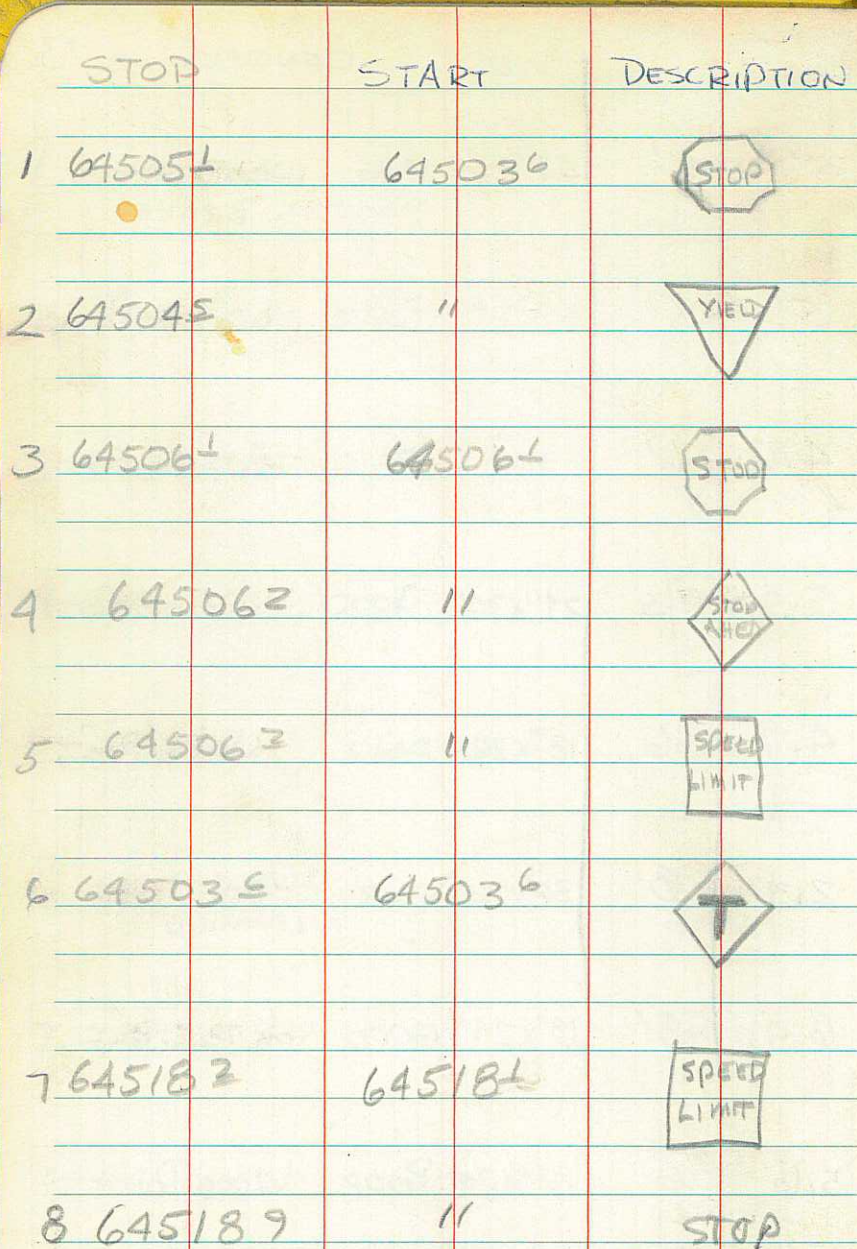 STOP START DESCRIPTION
1 645051 645036 STOP
2 645045 " YIELD
3 645061 645061 STOP
4 645062 " STOP
AHED
5 645062 " SPEED
LIMIT
6 645036 645036 T
7 645182 645181 SPEED
LIMIT
8 645189 " STOP